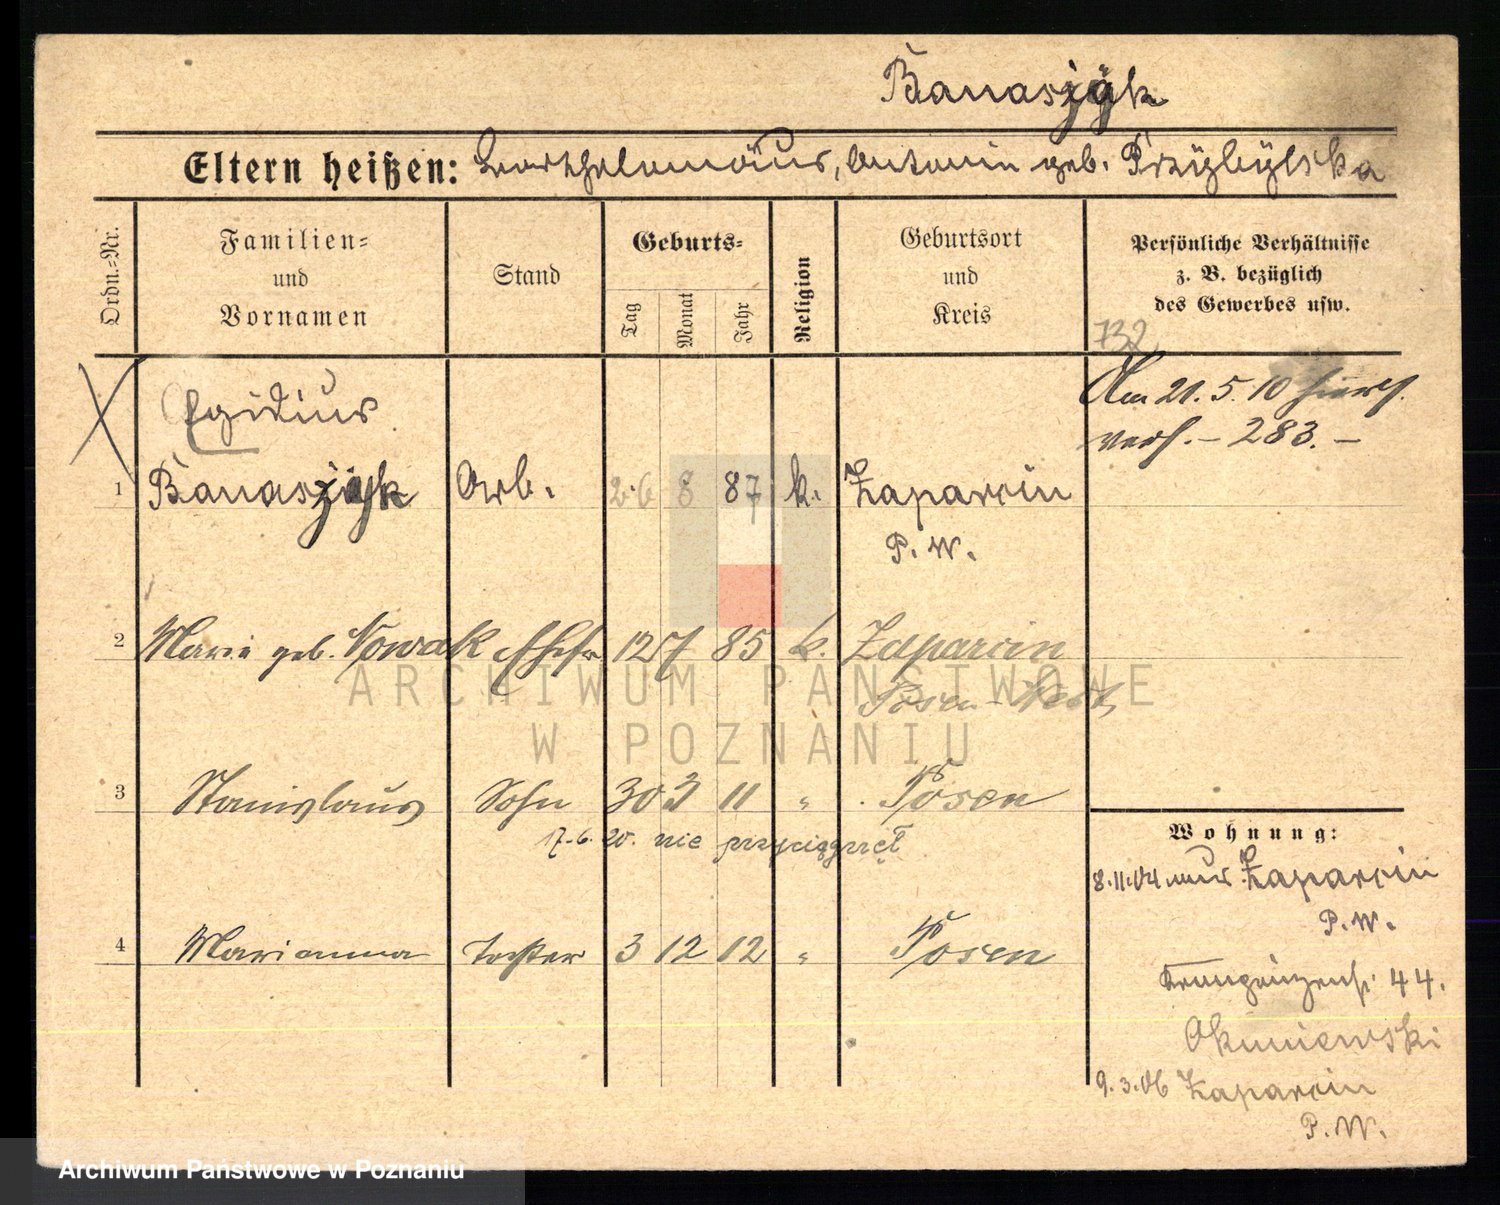 Banaszÿk
Eltern heißen: Bartholomäus, Antonin geb. Przÿbÿlska
Ordn.-Nr.
Familien-
und
Vornamen
Stand
Geburts-
Tag
Monat
Jahr
Religion
Geburtsort
und
Kreis
Persönliche Verhältnisse
z. B. bezüglich
des Gewerbes usw.
732
Egidius
1 Banaszÿk Arb. 26 8 87 k. Zaparcin
P. W.
Am 21. 5. 10 hiers.
verh. – 283. –
2 Marie geb. Nowak Ehefr 12 7 85 k. Zaparcin
Posen-West
3 Stanislaus Sohn 30 3 11 " Posen
7.6.20. nie przyciągnęł
4 Marianna Tochter 3 12 12 " Posen
Wohnung:
8.11.04 aus Zaparcin
P. W.
44.
Okuniewski
9.3.06 Zaparcin
P. W.
ARCHIWUM PAŃSTWOWE
W POZNANIU
Archiwum Państwowe w Poznaniu